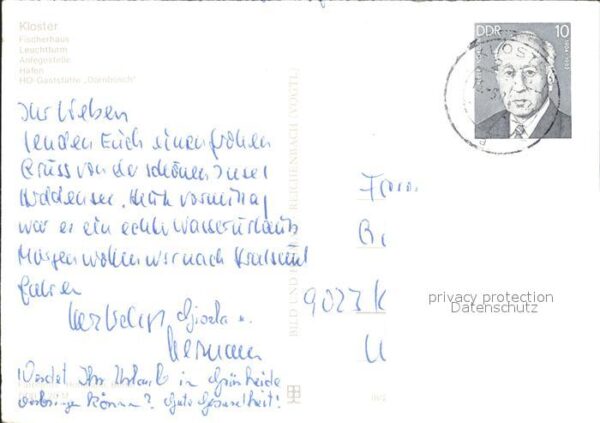 Kloster
Fischerhaus
Leuchtturm
Anlegestelle
Hafen
HO-Gaststätte „Dornbusch“
DDR 10
Ihr Lieben
senden Euch einen frohen
Gruss von der schönen Insel
Hiddensee. Heute vormittag
war es ein echter Wasserurlaub
Morgen wollen wir nach Stralsund
fahren
Herzlichst Gisela u.
Hermann
Werdet Ihr Urlaub in Grünheide
verbringen können? Gute Gesundheit!
REICHENBACH (VOGTL)
BILD UND
9023 K
privacy protection
Datenschutz